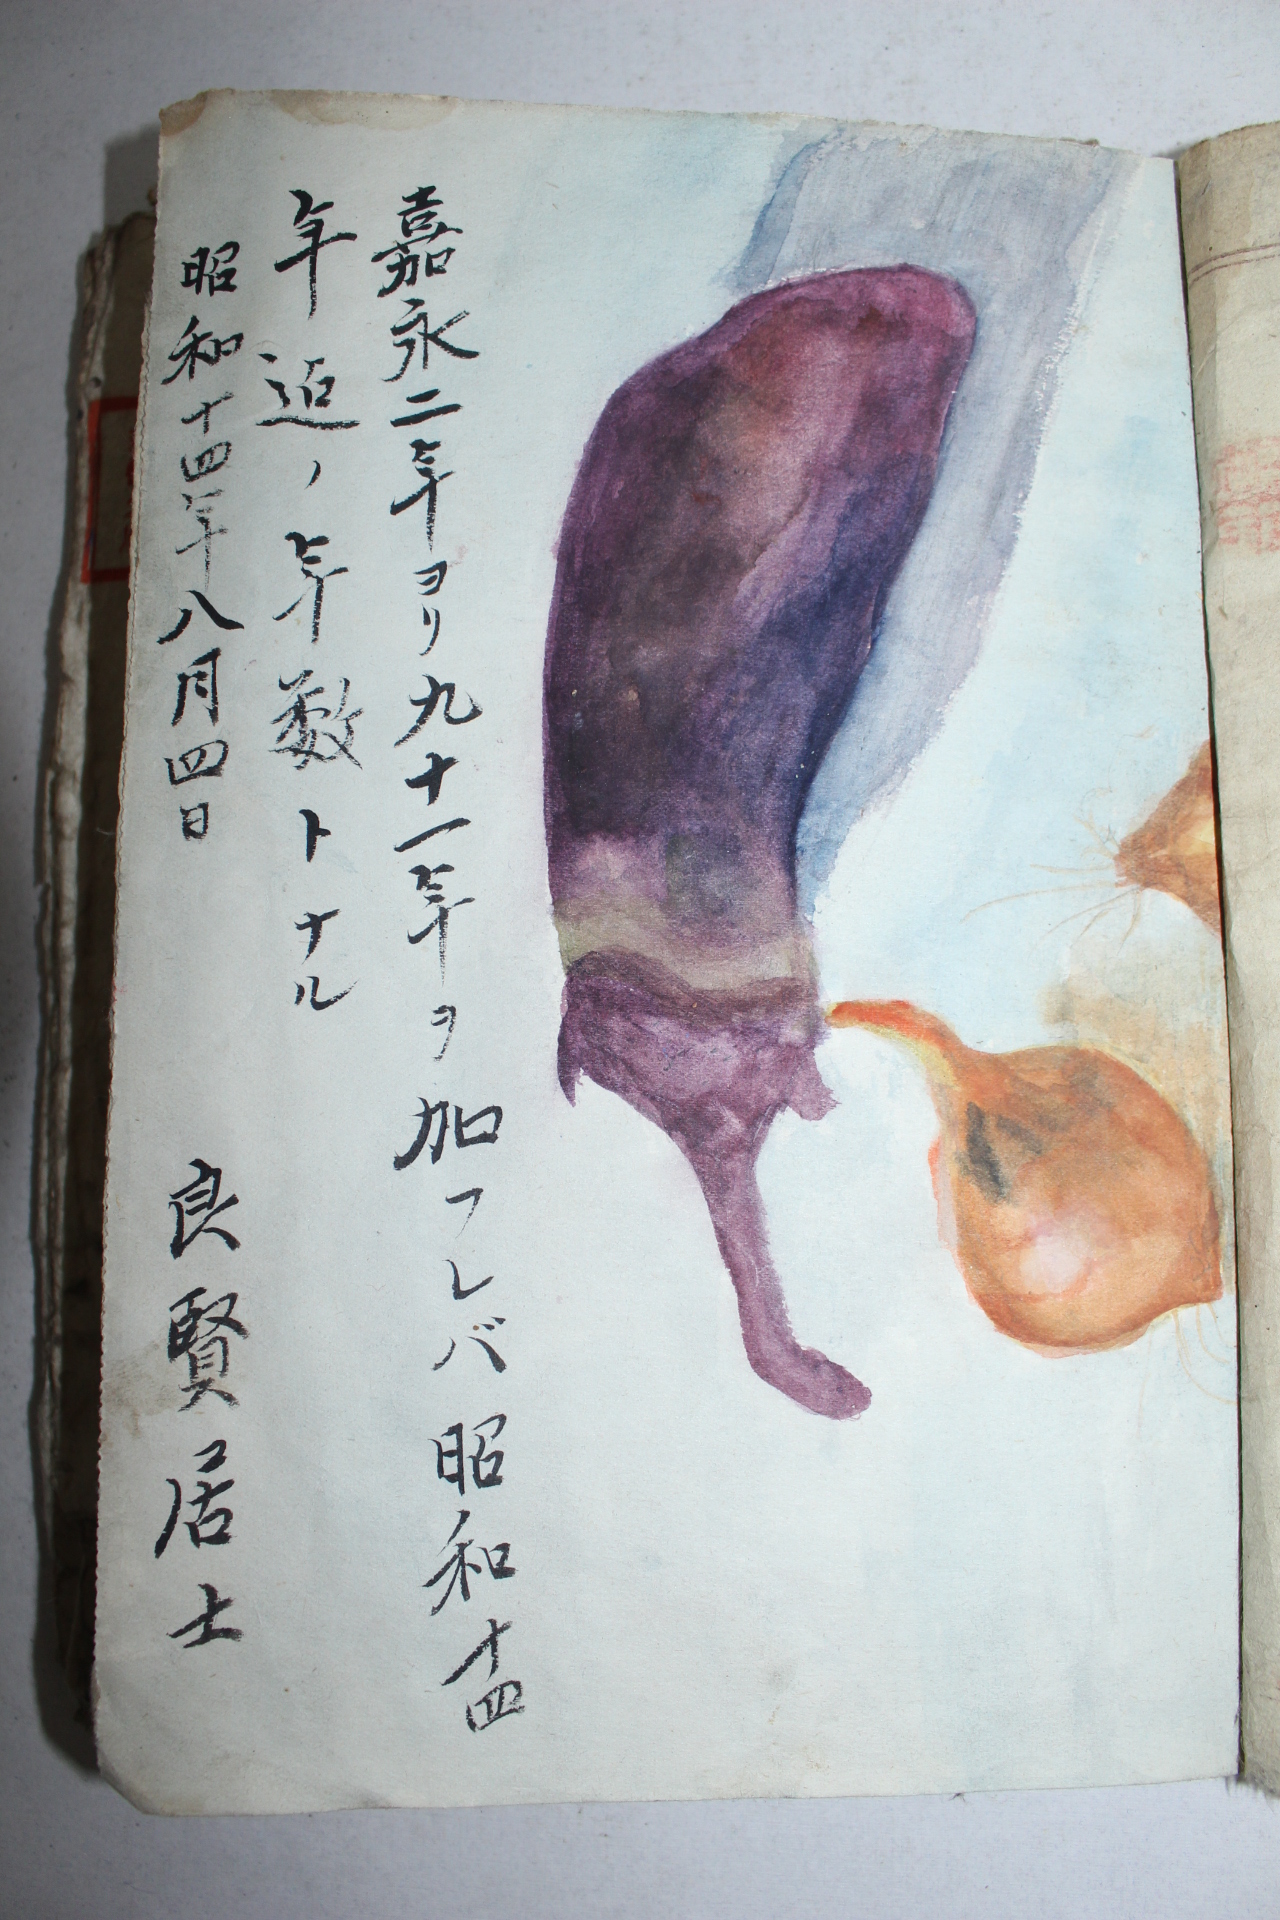 嘉永二年ヨリ九十一年ヲ加フレバ昭和十四
年迠ノ年数トナル
昭和十四年八月四日 良賢居士